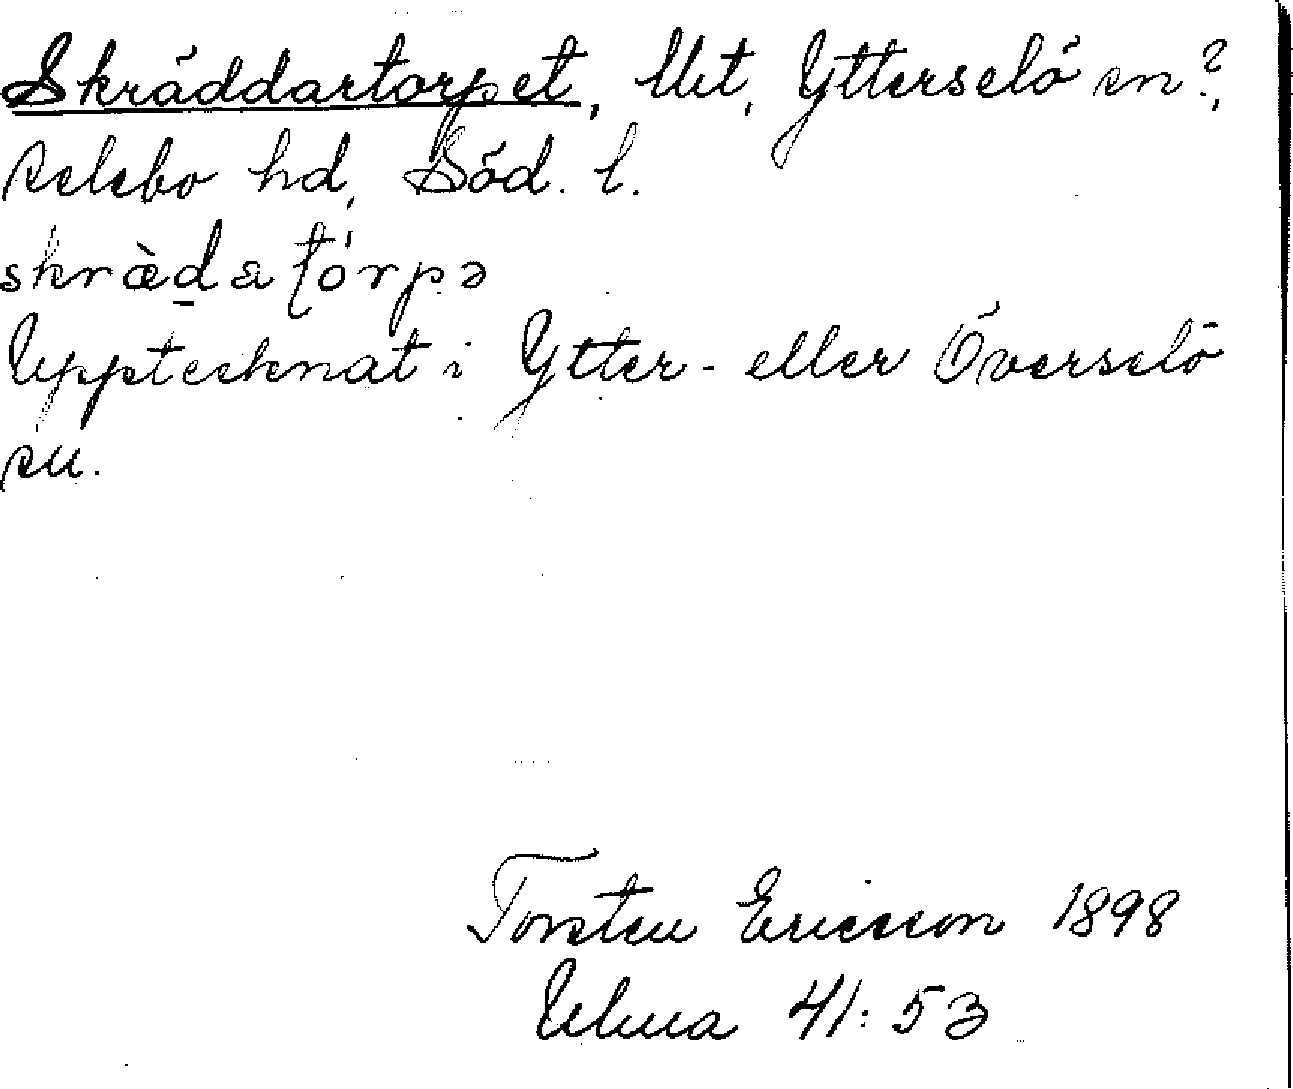 Skräddartorpet, Utet, Ytterselö sn?,
Selebo hd, Söd. l.
skrædatórpə
Upptecknat i Ytter- eller Överselö
sn.
Torsten Ericsson 1898
Ulma 41:53